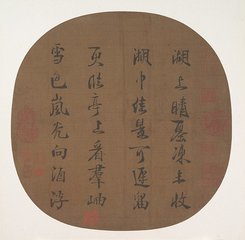 湖上晴凍未收
湖中佳景可遲留
亭上看羣岫
雪色嵐光向酒浮